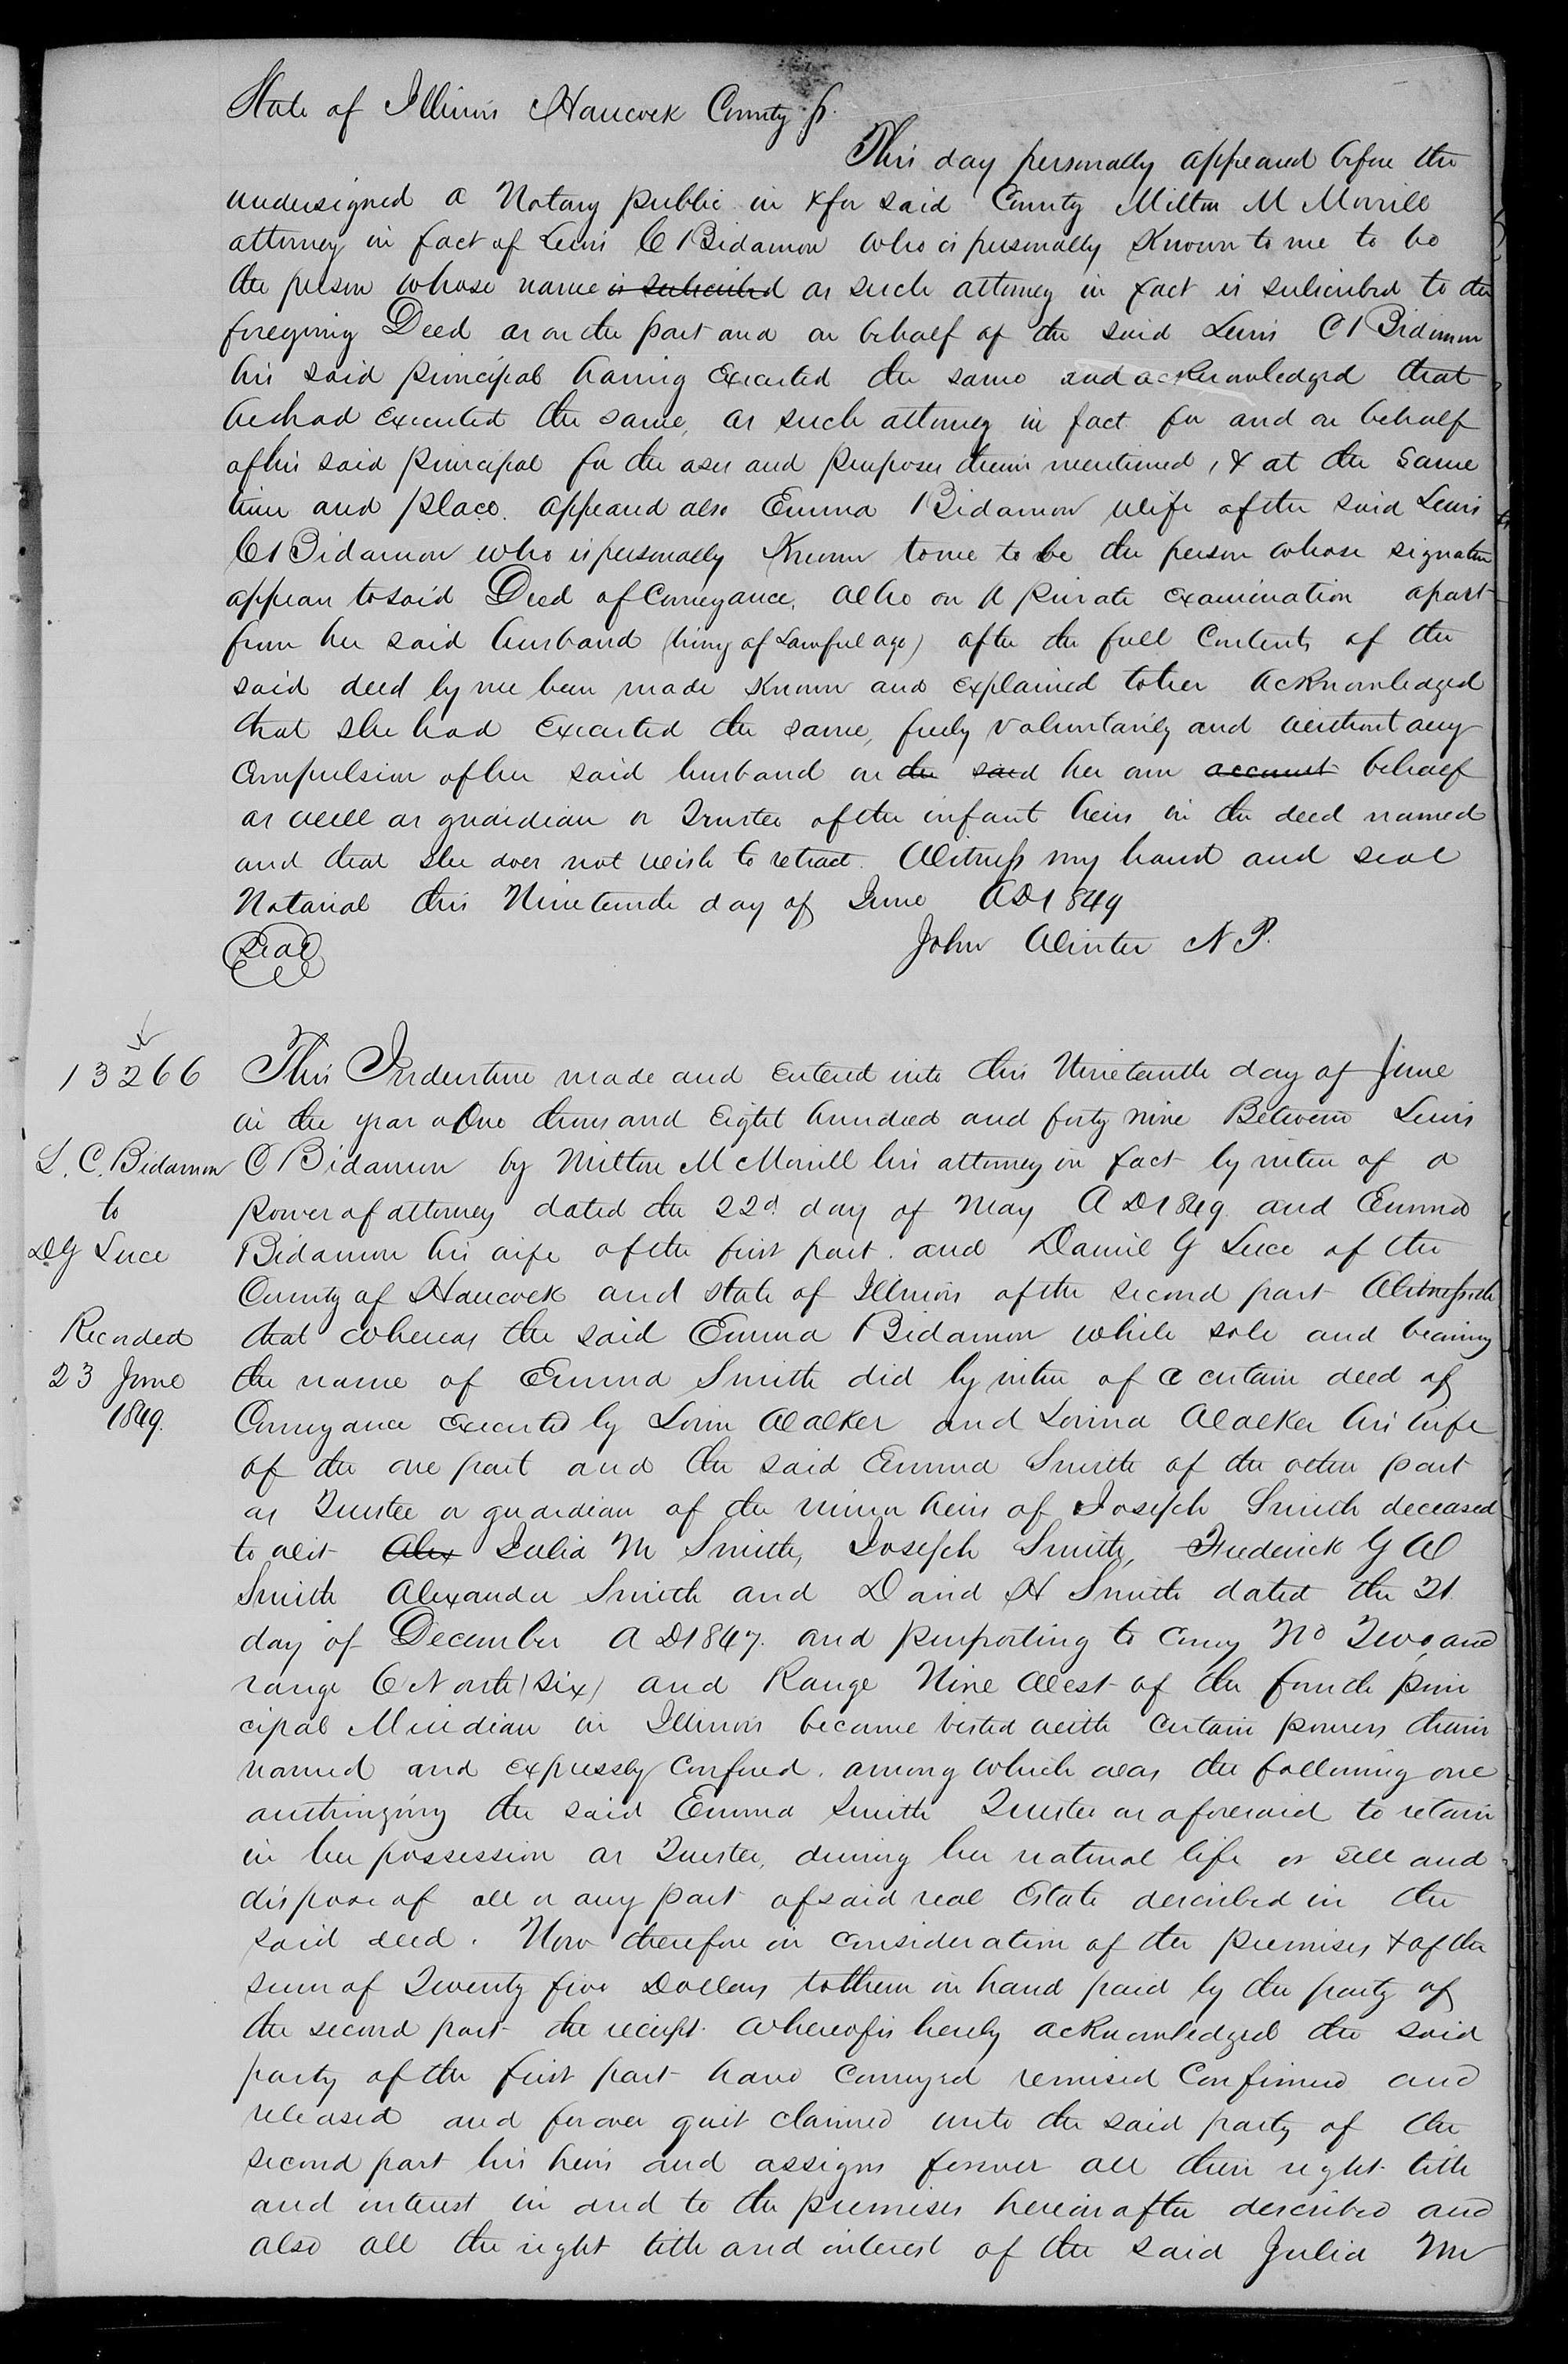 State of Illinois Hancock County ss.
This day personally appeared before the
undersigned a Notary public in & for said County Milton M Morrill
attorney in fact of Lewis C Bidamon who is personally Known to me to be
the person whose name is subscribed as such attorney in fact is subscribed to the
foregoing Deed as on the part and on behalf of the said Lewis C Bidamon
his said principal having Executed the same and acknowledged that
he had executed the same, as such attorney in fact for and on behalf
of his said principal for the uses and purposes therein mentioned, & at the same
time and place. appeared also Emma Bidamon wife of the said Lewis
C Bidamon who is personally Known to me to be the person whose signature
appears to said Deed of Conveyance, who on a private examination apart
from her said husband (being of Lawful age) after the full Contents of the
said deed by me been made Known and explained to her acknowledged
that she had executed the same, freely voluntarily and without any
Compulsion of her said husband on the said her own account behalf
as well as guardian or Trustee of the infant heirs in the deed named
and that she does not wish to retract. Witness my hand and seal
Notarial this Nineteenth day of June AD 1849
Seal
John Winter N.P.
13266
L. C. Bidamon
to
D G Luce
Recorded
23 June
1849.
This Indenture made and entered into this Nineteenth day of June
in the year One thousand Eight hundred and forty nine Between Lewis
C Bidamon by Milton M Morrill his attorney in fact by virtue of a
power of attorney dated the 22d. day of May A D 1849 and Emma
Bidamon his wife of the first part. and Daniel G Luce of the
County of Hancock and state of Illinois of the second part Witnesseth
that whereas the said Emma Bidamon while sole and bearing
the name of Emma Smith did by virtue of a certain deed of
Conveyance Executed by Lorin Walker and Lovina Walker his wife
of the one part and the said Emma Smith of the other part
as Trustee or guardian of the minor heirs of Joseph Smith deceased
to wit Alex Julia M Smith, Joseph Smith, Frederick G W
Smith Alexander Smith and David H Smith dated the 21
day of December A D 1847. and purporting to convey No Two, and
range 6 North (six) and Range Nine West of the fourth prin
cipal Meridian in Illinois became vested with certain powers therein
named and expressly Confered. among which was the following one
authorizing the said Emma Smith Trustee as aforesaid to retain
in her possession as Trustee, during her natural life or sell and
dispose of all or any part of said real Estate described in the
said deed. Now therefore in consideration of the premises & of the
sum of Twenty five Dollars to them in hand paid by the party of
the second part the receipt whereof is hereby acknowledged the said
party of the first part have conveyed remised Confirmed and
released and forever quit claimed unto the said party of the
second part his heirs and assigns forever all their right title
and interest in and to the premises hereinafter described and
also all the right title and interest of the said Julia M